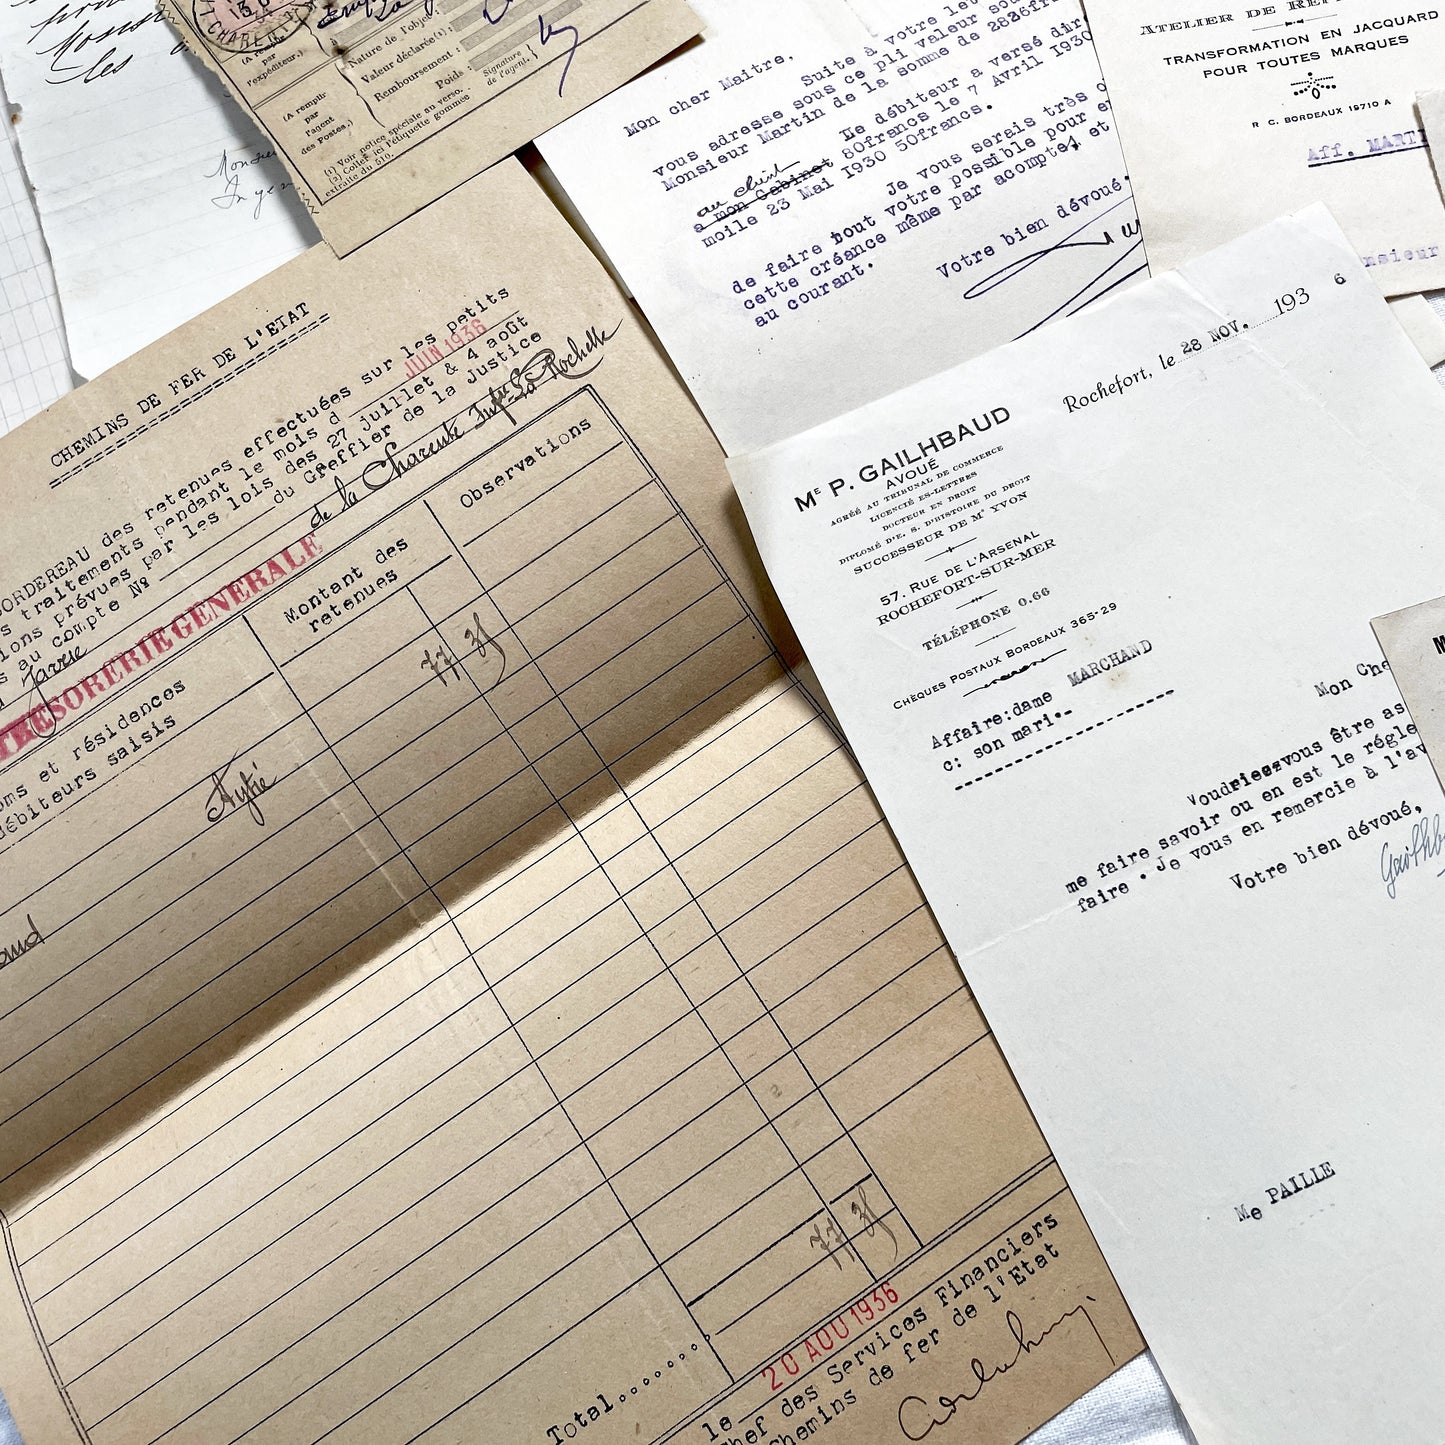 (A remplir
par
l'agent
des Postes.)
Nature de l'objet:
Valeur déclarée(1):
Remboursement:
Poids:
Signature
de l'agent.
(1) Voir notice spéciale au verso.
(2) Coller ici l'étiquette gommée
extraite du 510.
Mon cher Maitre,
Suite à votre
vous adresse sous ce pli valeur
Monsieur Martin de la somme de
Le débiteur a versé
au client
a mon Cabinet 80francs le 7 Avril I930
moile 23 Mai I930 50francs.
Je vous serais très
de faire tout votre possible pour
cette créance même par acomptes et
au courant.
Votre bien dévoué.
ATELIER DE
TRANSFORMATION EN JACQUARD
POUR TOUTES MARQUES
R C. BORDEAUX 19710 A
Aff.
CHEMINS DE FER DE L'ETAT
BORDEREAU des retenues effectuées sur les petits
traitements pendant le mois d JUIN 1936
prévues par les lois des 27 juillet & 4 août
au compte Nº du Greffier de la Justice
de la Charente Infre La Rochelle
TRESORERIE GENERALE
et résidences
débiteurs saisis
Montant des
retenues
Observations
Aytré
77 35
77 35
Total.......
le 20 AOU 1936
Chef des Services Financiers
Chemins de fer de l'Etat
Rochefort, le 28 NOV. 193 6
Me P. GAILHBAUD
AVOUÉ
AGRÉÉ AU TRIBUNAL DE COMMERCE
LICENCIÉ ES-LETTRES
DOCTEUR EN DROIT
DIPLOMÉ D'E. S. D'HISTOIRE DU DROIT
SUCCESSEUR DE Me YVON
57, RUE DE L'ARSENAL
ROCHEFORT-SUR-MER
TÉLÉPHONE 0.66
CHÈQUES POSTAUX BORDEAUX 365-29
Affaire:dame MARCHAND
c: son mari.-
Mon
Voudriezvous être
me faire savoir ou en est le
faire . Je vous en remercie à
Votre bien dévoué,
Me PAILLE